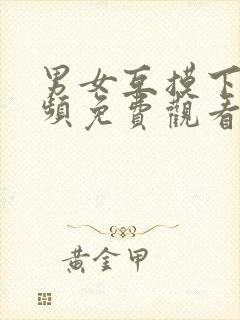 男女互摸下
頻免費觀看
黃金甲